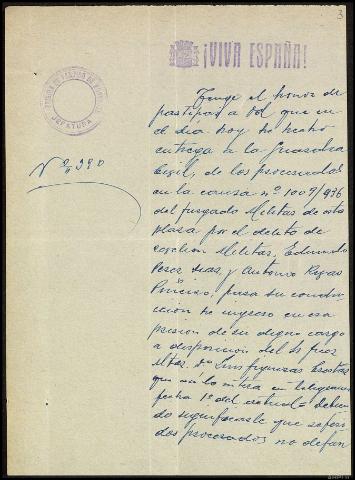 3
¡VIVA ESPAÑA!
JEFATURA
Nº 2290
Tengo el honor de
participar a Vd que en
el día hoy he hecho
entrega a la Guardia
Civil, de los procesados
en la causa nº 1009/936
del Juzgado Militar de esta
plaza por el delito de
Militar, Eduardo
Perez Dias, y Antonio Rivas
para su conduc
cion é ingreso en esa
prision de su digno cargo
a disposicion del Sr Juez
Mtar. Dn Luis
que asi lo en telegrama
fecha 1º del actual = debien
do significarle que
dos procesados no